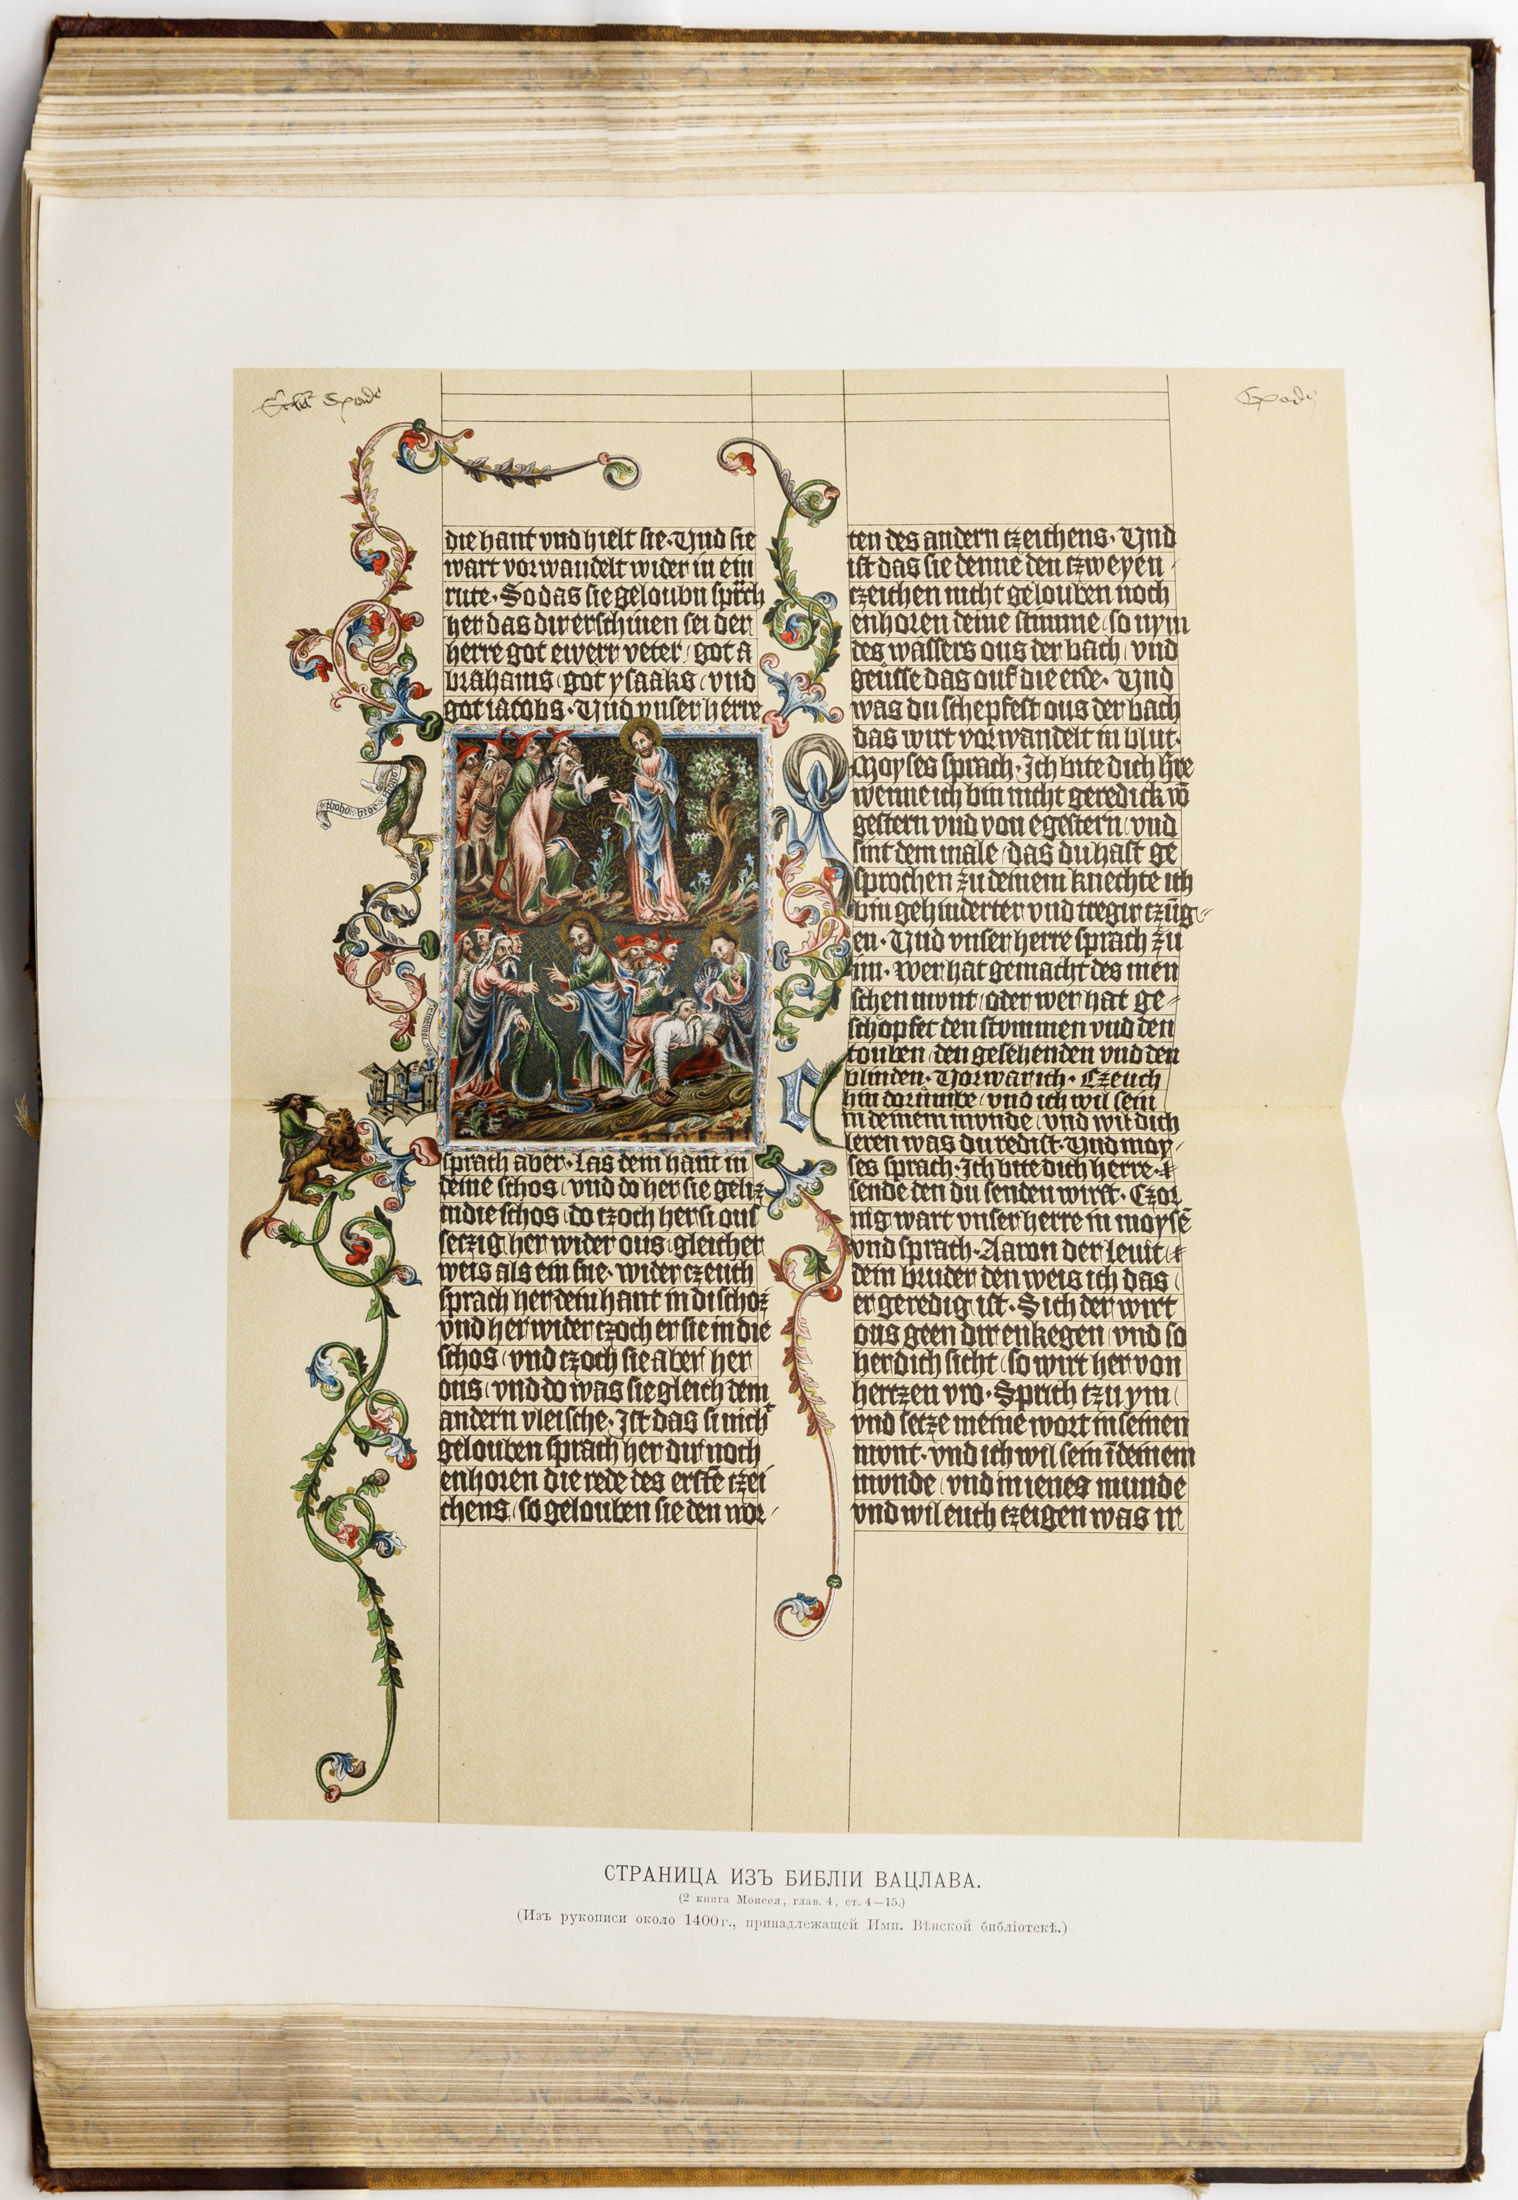 die hant vnd hielt sie · Vnd sie
wart vorwandelt wider in ein
rute · So das sie geloubn sprach
her das dir erschinen sei der
herre got ewerr veter / got a
brahams / got ysaaks / vnd
got iacobs · Vnd vnser herre
sprach aber · Las dein hant in
deine schos / vnd do her sie
in die schos / do tzoch her si ous
setzig her wider ous / gleicher
weis als ein sne · wider tzeuch
sprach her dein hant in di schoz
vnd her wider tzoch er sie in die
schos / vnd tzoch sie aber her
ous / vnd do was sie gleich dem
andern vleische · Ist das si nicht
gelouben sprach her dir noch
enhoren die rede des erstē tzei
chens / so gelouben sie den wor-
ten des andern tzeichens · Vnd
ist das sie denne den tzweyen -
tzeichen nicht gelouben noch
enhoren deine stimme / so nym
des wassers ous der bach / vnd
geusse das ouf die erde · Vnd
was du schepfest ous der bach
das wirt vorwandelt in blut ·
Moyses sprach · Ich bite dich h̄re
wenne ich bin nicht geredick vō
gestern vnd von egestern / vnd
sint dem male / das du hast ge
sprochen zu deinem knechte ich
bin gehinderter vnd tregir tzūg-
en · Vnd vnser herre sprach zu
im · Wer hat gemacht des men
schen mvnt / oder wer hat ge-
schopfet den stvmmen vnd den
touben / den gesehenden vnd den
blinden · Vorwar ich · Czeuch
hin dorumbe / vnd ich wil sein
in deinem mvnde / vnd wil dich
leren was du redist · Vnd moy-
ses sprach · Ich bite dich herre ·
sende den du senden wirst · Czor
nig wart vnser herre in moysē
vnd sprach · Aaron der leuit /
dein bruder den weis ich das /
er geredig ist · Sich der wirt
ous geen dir enkegen / vnd so
her dich sicht / so wirt her von
hertzen vro · Sprich tzu ym /
vnd setze meine wort in seinen
mvnt · vnd ich wil sein ī deinem
mvnde / vnd in ienes munde
vnd wil euch tzeigen was ir
СТРАНИЦА ИЗЪ БИБЛІИ ВАЦЛАВА.
(2 книга Моисея, глав. 4, ст. 4—15.)
(Изъ рукописи около 1400 г., принадлежащей Имп. Вѣнской библіотекѣ.)